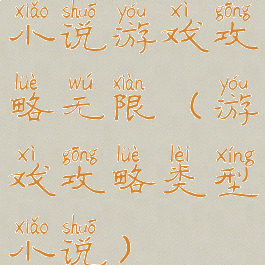 xiǎo shuō yóu xì gōng
小说游戏攻
lüè wú xiàn yóu
略无限（游
xì gōng lüè lèi xíng
戏攻略类型
xiǎo shuō
小说）